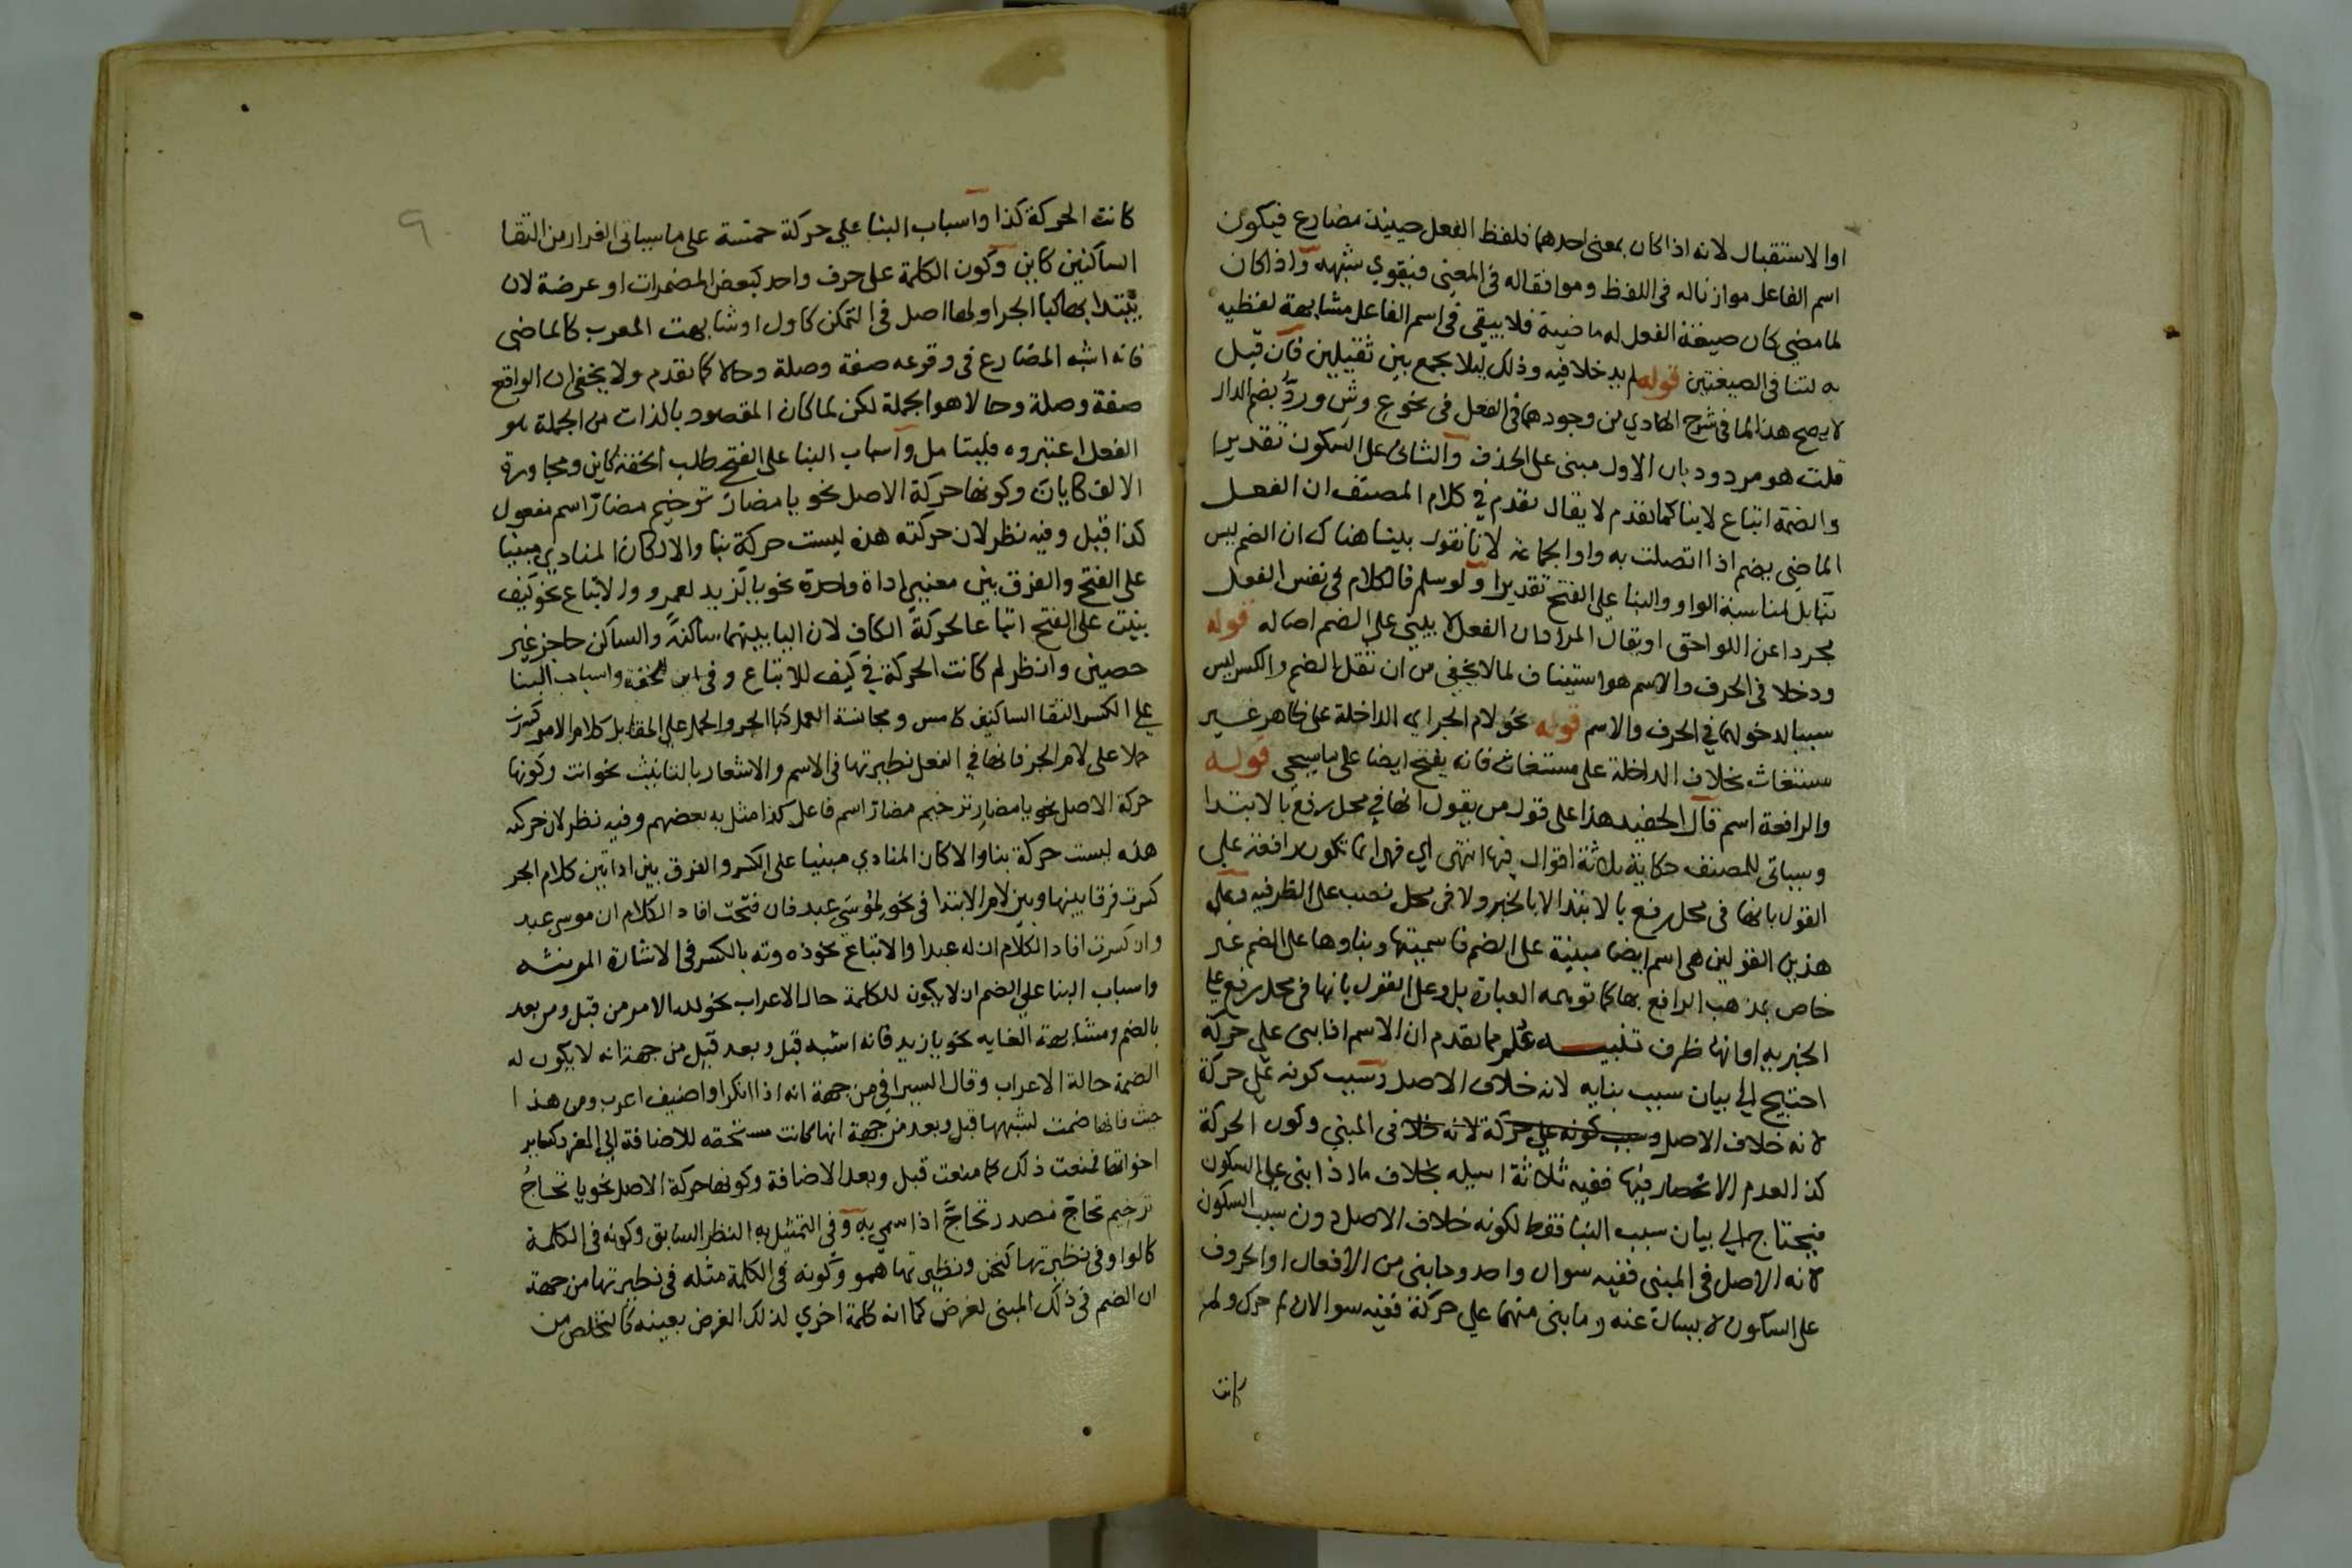 او الاستقبال لانه اذا كان بمعنى احدهما فلفظ الفعل حينئذ مضارع فيكون
اسم الفاعل موازناله في اللفظ وموافقاله في المعنى فيقوي شبهه واذا كان
لما مضي كان صيغة الفعل له ماضية فلا يبقى في اسم الفاعل مشابهة لفظيه
لتنافي الصيغتين قوله لم يدخلا فيه وذلك ليلا يجمع بين ثقيلين فان قيل
لا يصح هذا لما في شرح الهادي من وجودهما في الفعل في نحو ع وش ورد بضم الدال
قلت هو مردود بان الاول مبنى على الحذف والثاني على السكون تقديرا
والضمة اتباع لا بنا كما تقدم لا يقال تقدم في كلام المصنف ان الفعل
الماضي يضم اذا اتصلت به واو الجماعه لانا نقول بينا هناك ان الضم ليس
بنا بل لمناسبة الواو والبنا على الفتح تقديرا ولو سلم فالكلام في نفس الفعل
مجردا عن اللواحق او يقال المراد ان الفعل لا يبنى على الضم اصاله قوله
ودخلا في الحرف والاسم هو استيناف لما لا يخفى من ان ثقل الضم والكسر ليس
سببا لدخولهما في الحرف والاسم قوله نحو لام الجر اي الداخلة على ظاهر غير
مستغاث بخلاف الداخلة على مستغاث فانه يفتح ايضا على ما سيجي قوله
والرافعة اسم قال الحفيد هذا على قول من يقول انها في محل رفع بالابتدا
وسياتي للمصنف حكاية ثلاثة اقوال فيها انتهى اي فهي انما تكون رافعة على
القول بانها في محل رفع بالابتدا لا بالخبر ولا في محل نصب على الظرفيه وعلى
هذين القولين هي اسم ايضا مبنية على الضم فاسميتها وبناوها على الضم غير
خاص بمذهب الرافع بها كما توهمه العبارة بل وعلى القول بانها في محل رفع على
الخبريه او انها ظرف تنبيه علم مما تقدم ان الاسم اذا بنى على حركة
احتيج الى بيان سبب بنايه لانه خلاف الاصل وسبب كونه على حركة
لانه خلاف الاصل وسبب كونه على حركة لانه خلا في المبني وكون الحركة
كذا لعدم الانحصار فيها ففيه ثلاثة اسيله بخلاف ما اذا بنى على السكون
فيحتاج الى بيان سبب البنا فقط لكونه خلاف الاصل دون سبب السكون
لانه الاصل في المبنى ففيه سوال واحد وما بنى من الافعال او الحروف
على السكون لا يسال عنه وما بنى منهما على حركة ففيه سوالان لم حرك ولم
كانت
٩
كانت الحركة كذا واسباب البنا على حركة خمسة على ما سياتي الفرار من التقا
الساكنين كاين وكون الكلمة على حرف واحد كبعض المضمرات او عرضة لان
يبتدا بها كبا الجر او لها اصل في التمكن كاول او شابهت المعرب كالماضي
فانه اشبه المضارع في وقوعه صفة وصلة وحالا كما تقدم ولا يخفى ان الواقع
صفة وصلة وحالا هو الجملة لكن لما كان المقصود بالذات من الجملة هو
الفعل اعتبروه فليتامل واسباب البنا على الفتح طلب الخفة كاين ومجاورة
الالف كايان وكونها حركة الاصل نحو يا مضار ترخيم مضارّ اسم مفعول
كذا قيل وفيه نظر لان حركته هذه ليست حركة بنا والا لكان المنادي مبنيا
على الفتح والفرق بين معنيي اداة واحدة نحو يا لزيد لعمرو والاتباع نحو كيف
بنيت على الفتح اتباعا لحركة الكاف لان اليا بينهما ساكنة والساكن حاجز غير
حصين وانظر لم كانت الحركة في كيف للاتباع وفي اين للخفة واسباب البنا
على الكسر التقا الساكنين كامس ومجانسة العمل كبا الجر والحمل على المقابل كلام الامر كسرت
حملا على لام الجر فانها في الفعل نظيرتها في الاسم والاشعار بالتانيث نحو انت وكونها
حركة الاصل نحو يا مضارِ ترخيم مضارّ اسم فاعل كذا مثل به بعضهم وفيه نظر لان حركته
هذه ليست حركة بنا والا كان المنادي مبنيا على الكسر والفرق بين اداتين كلام الجر
كسرت فرقا بينها وبين لام الابتدا في نحو لموسى عبد فان فتحت افاد الكلام ان موسى عبد
وان كسرت افاد الكلام ان له عبدا والاتباع نحو ذه وته بالكسر في الاشارة المونثه
واسباب البنا على الضم ان لا يكون للكلمة حال الاعراب نحو لله الامر من قبل ومن بعد
بالضم ومشابهة الغايه نحو يا زيد فانه اشبه قبل وبعد قيل من جهة انه لا يكون له
الضمة حالة الاعراب وقال السيرافي من جهة انه اذا انكر او اضيف اعرب ومن هذا
حيث فانها ضمت لشبهها قبل وبعد من جهة انها كانت مستحقه للاضافة الى المفرد كساير
اخواتها فمنعت ذلك كما منعت قبل وبعد الاضافة وكونها حركة الاصل نحو يا تحاجُ
ترخيم تحاجّ مصدر تحاجَّ اذا سمي به وفي التمثيل به النظر السابق وكونه في الكلمة
كالواو في نظيرتها كنحن ونظيرتها همو وكونه في الكلمة مثله في نظيرتها من جهة
ان الضم في ذلك المبنى لغرض كما انه كلمة اخري لذلك الغرض بعينه كالتخلص من